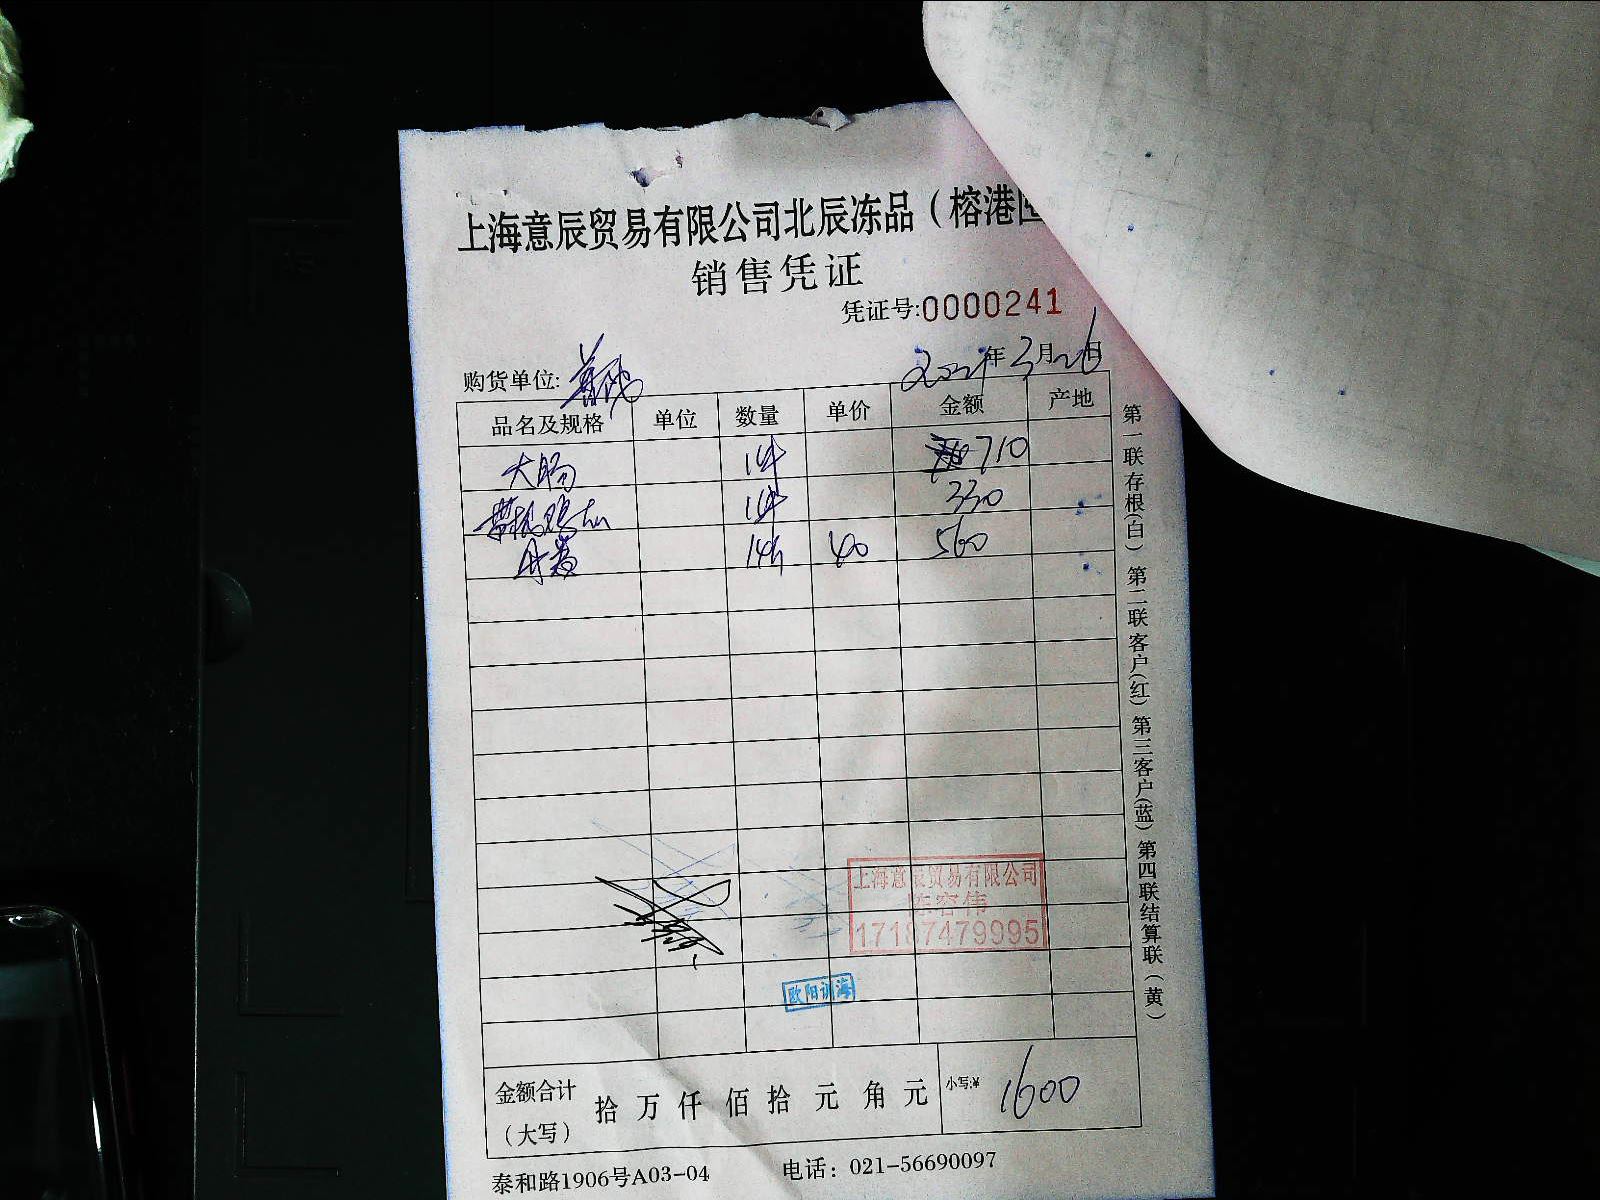 上海意辰贸易有限公司北辰冻品（榕港
销售凭证
凭证号:0000241
购货单位:
2021年3月26日
品名及规格 单位 数量 单价 金额 产地
大肠 1件 710
1件 330
14 40 560
上海意辰贸易有限公司
陈容伟
17187479995
欧阳训海
金额合计（大写） 拾 万 仟 佰 拾 元 角 元 小写:¥ 1600
泰和路1906号A03-04 电话：021-56690097
第一联存根(白) 第二联客户(红) 第三客户(蓝) 第四联结算联(黄)